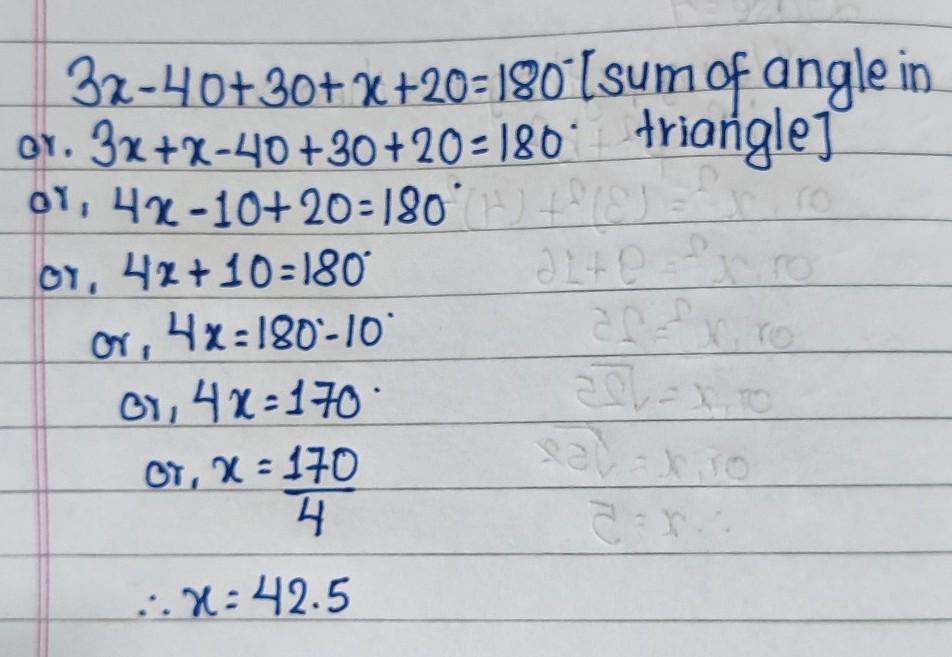 3x-40+30+x+20=180° [sum of angle in
or. 3x+x-40+30+20=180° triangle]
or, 4x-10+20=180°
or, 4x+10=180°
or, 4x=180°-10°
or, 4x=170°
or, x=170/4
∴ x=42.5